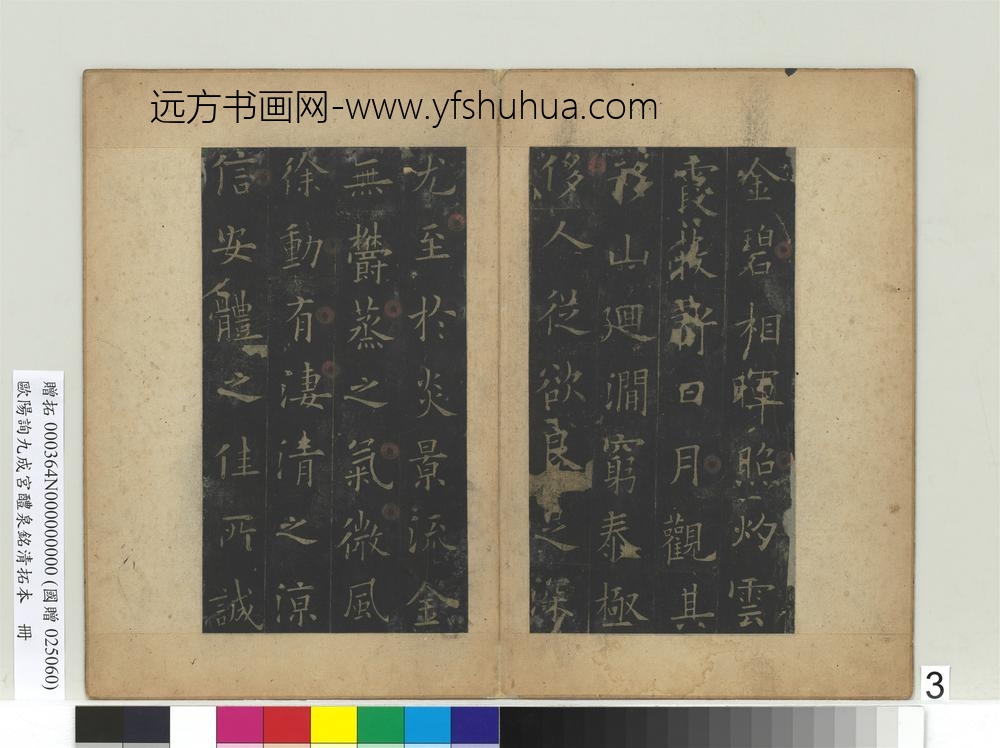 远方书画网-www.yfshuhua.com
金碧相暉照灼雲
霞蔽虧日月觀其
移山迴澗窮泰極
侈人從欲良足深
尤至於炎景流金
無鬱蒸之氣微風
徐動有淒清之涼
信安體之佳所誠
贈拓 000364N000000000 (國贈 025060)
歐陽詢九成宮醴泉銘清拓本 冊
3